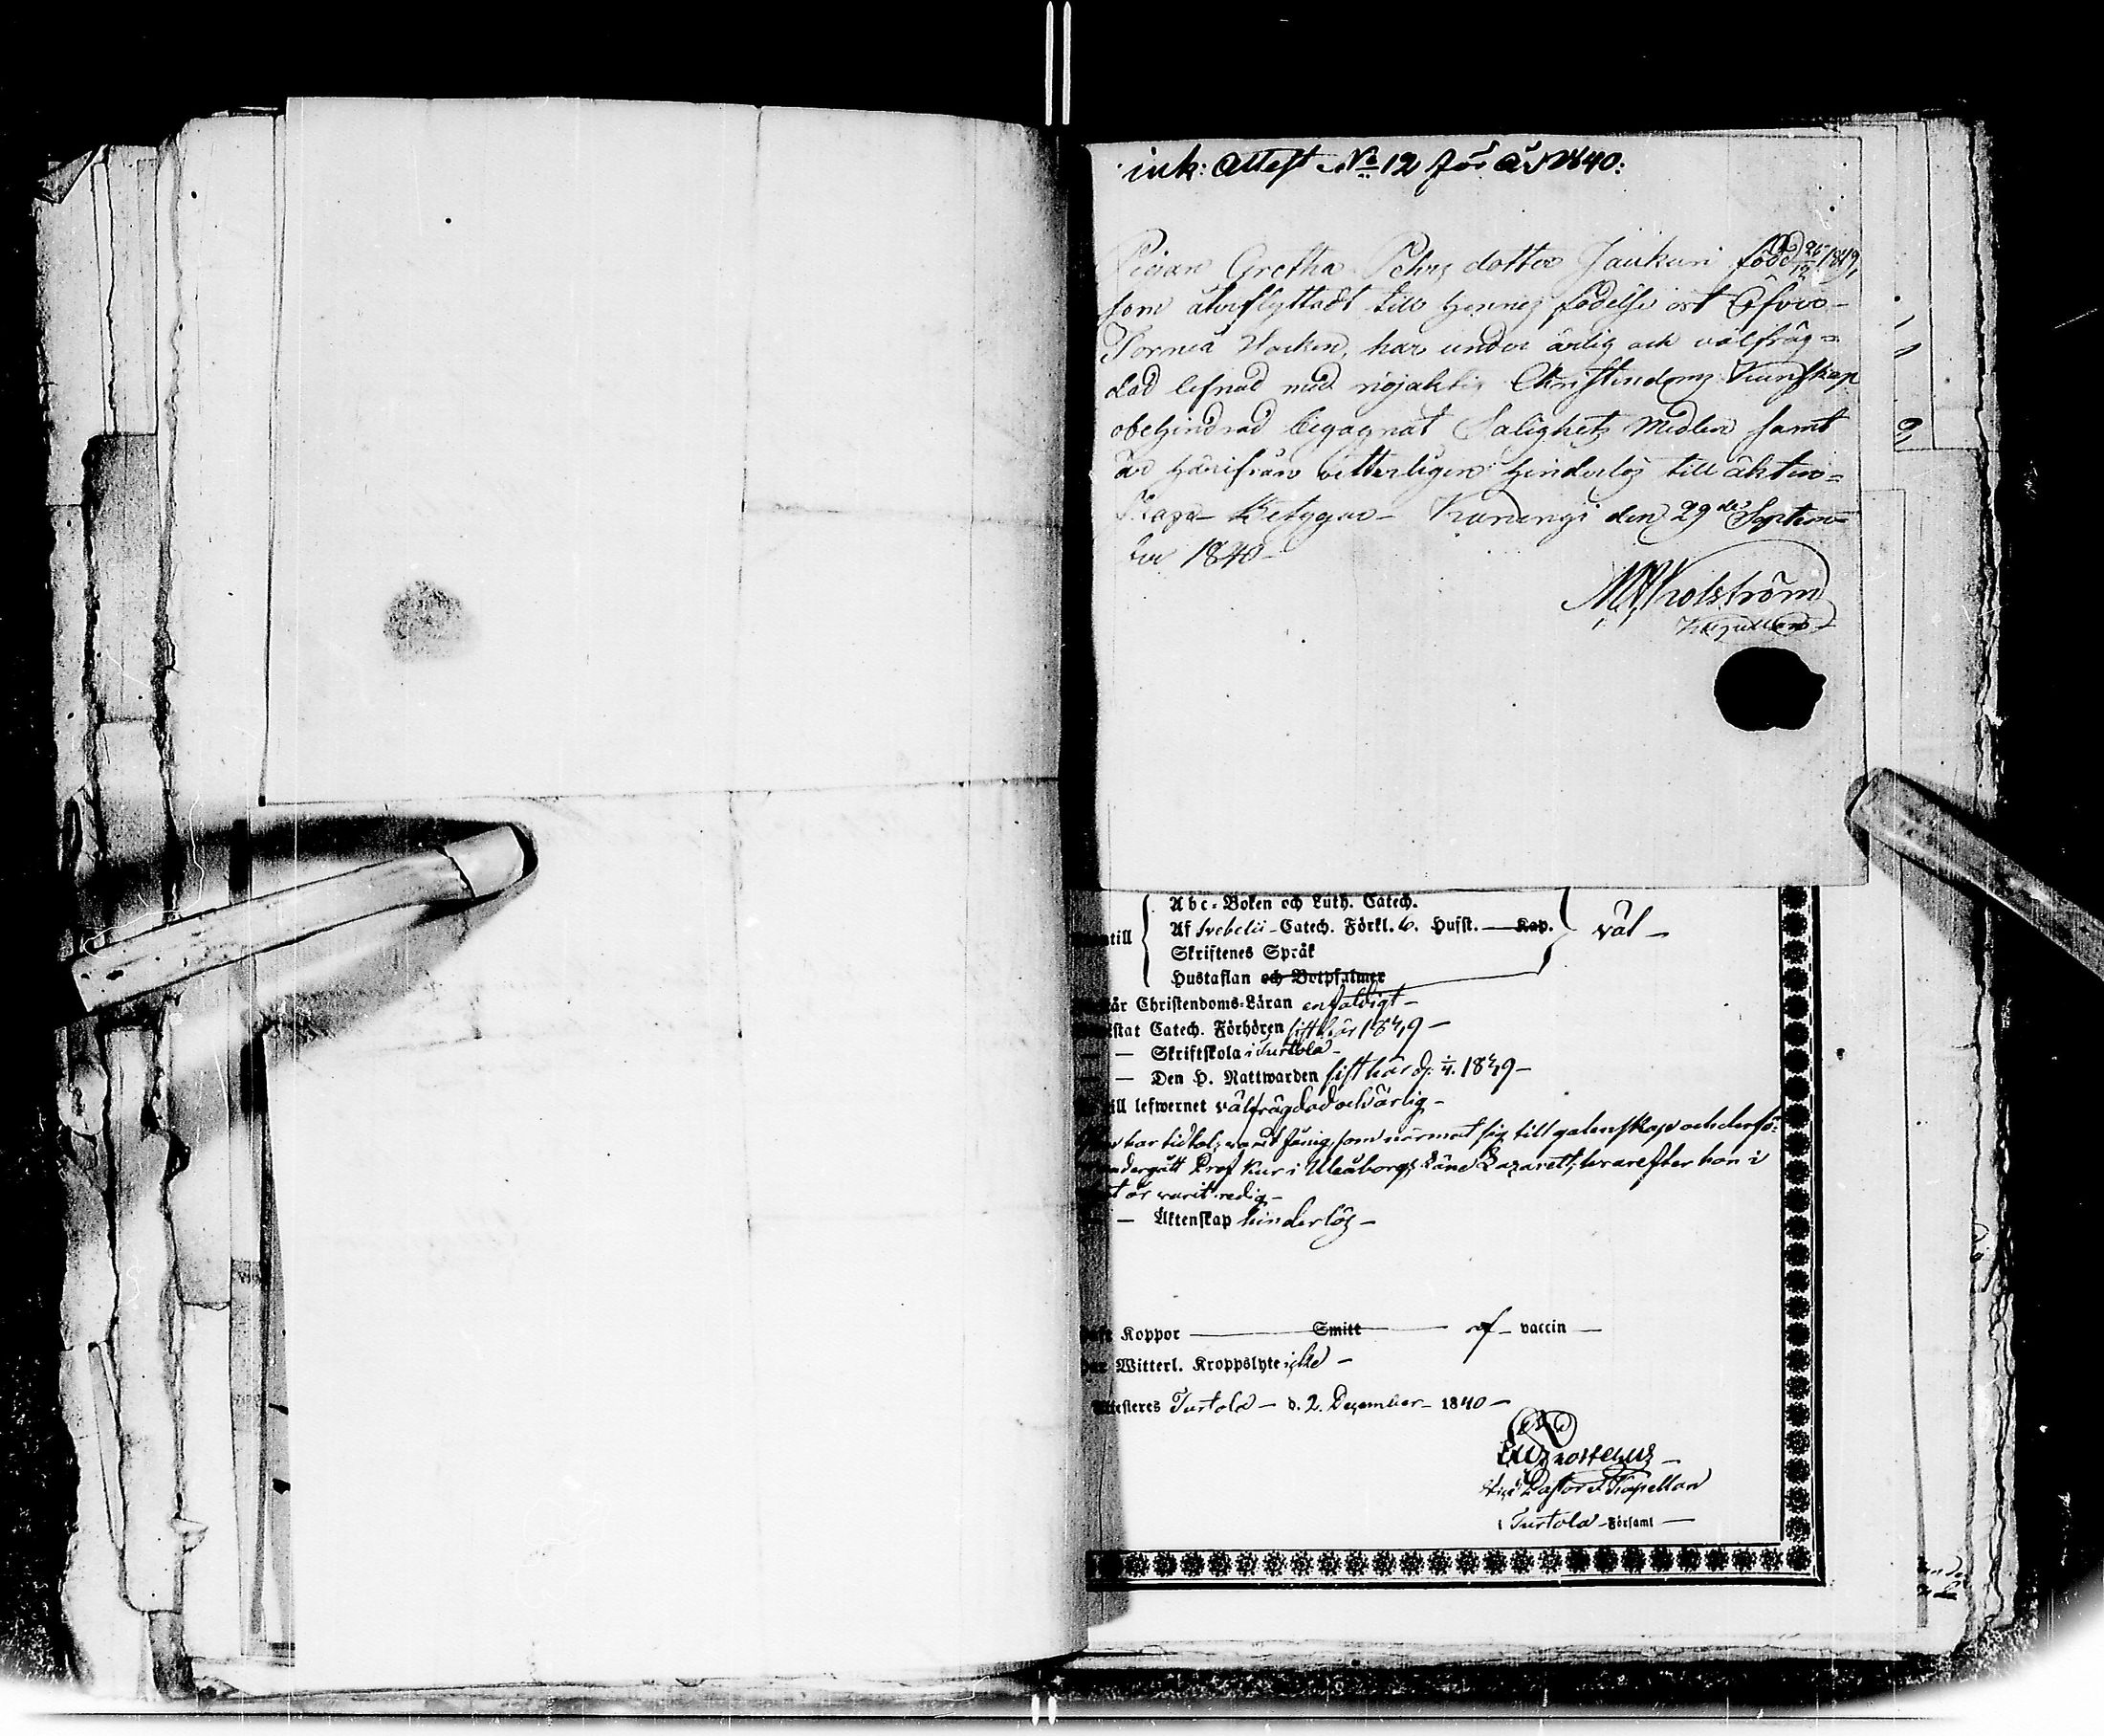 ink: Attest No 12 för år 1840:
Pigan Gretha Pehrs dotter Jaukuri född 26/12 1819,
som återflyttadt till hennes födelse ort Öfver-
Torneå Socken, har under ärlig och välfräg=
dad lefnad med nöjaktig Christendoms Kunskap
obehindrad begagnat Salighets Medlen samt
är härifrån vitterligen hinderlös till äkten=
skap – Betygar – Karungi den 29de Septem=
ber 1840 –
Kapellan
Abc-Boken och Luth. Catech.
till Af Svebelii – Catech. Förkl. 6. Hufst. — Kap. väl –
Skriftenes Språk
Hustaflan och Botpsalmer
Christendoms-Läran enfaldigt –
Catech. Förhören sist här 1839 –
— Skriftskola i Turtola –
— Den H. Nattwarden sist här d. 1/4. 1839 –
till lefwernet välfrägdad och ärlig –
har tidtals varit fånig, som närmat sig till galenskap och derfö-
undergått Prof Kur i Uleåborgs Läns Lazarett, hvarefter hon i
år varit redig –
— Äktenskap hinderlös –
Koppor — Smitt — af – vaccin —
Witterl. Kroppslyte icke –
Attesteres Turtola – d. 2. December – 1840 –
Vice Pastor & Kapellan
i Turtola – Församl —